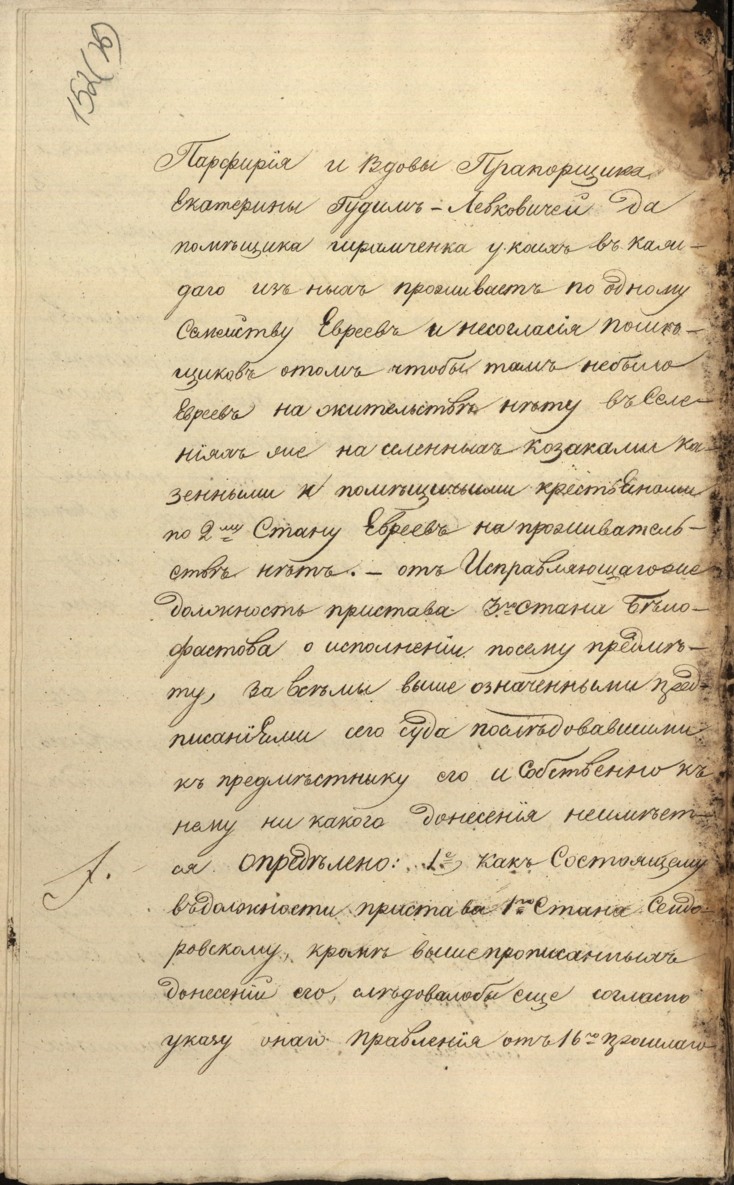 152(76)
Парфирія и Вдовы Прапорщика
Екатерины Гудимъ-Левковичей да
помѣщика у коихъ въ каж-
даго изъ ныхъ проживаетъ по одному
Семейству Евреевъ и несогласія помѣ-
щиковъ отомъ чтобы тамъ небыло
Евреевъ на жительствѣ нѣту въ Селе-
ніяхъ же на селенныхъ козаками ка-
зенными и помѣщичьими крестьЕнами
по 2му Стану Евреевъ на проживатель-
ствѣ нѣтъ. – отъ Исправляющагоже
должность пристава 3го Стана Бѣло-
фастова о исполненіи посему предмѣ-
ту, за всѣмы выше означенными пред-
писаніЕми сего суда послѣдовавшими
къ предмѣстнику его и Собственно къ
нему ни какого донесенія неимѣет-
ся опредѣлено: 1е Какъ Состоящему
въдолжности пристава 1го Стана Сендо-
ровскому, кромѣ вышепрописанныхъ
донесеній его, слѣдовалобы еще согласно
указу онаго Правленія отъ 16го прошлаго